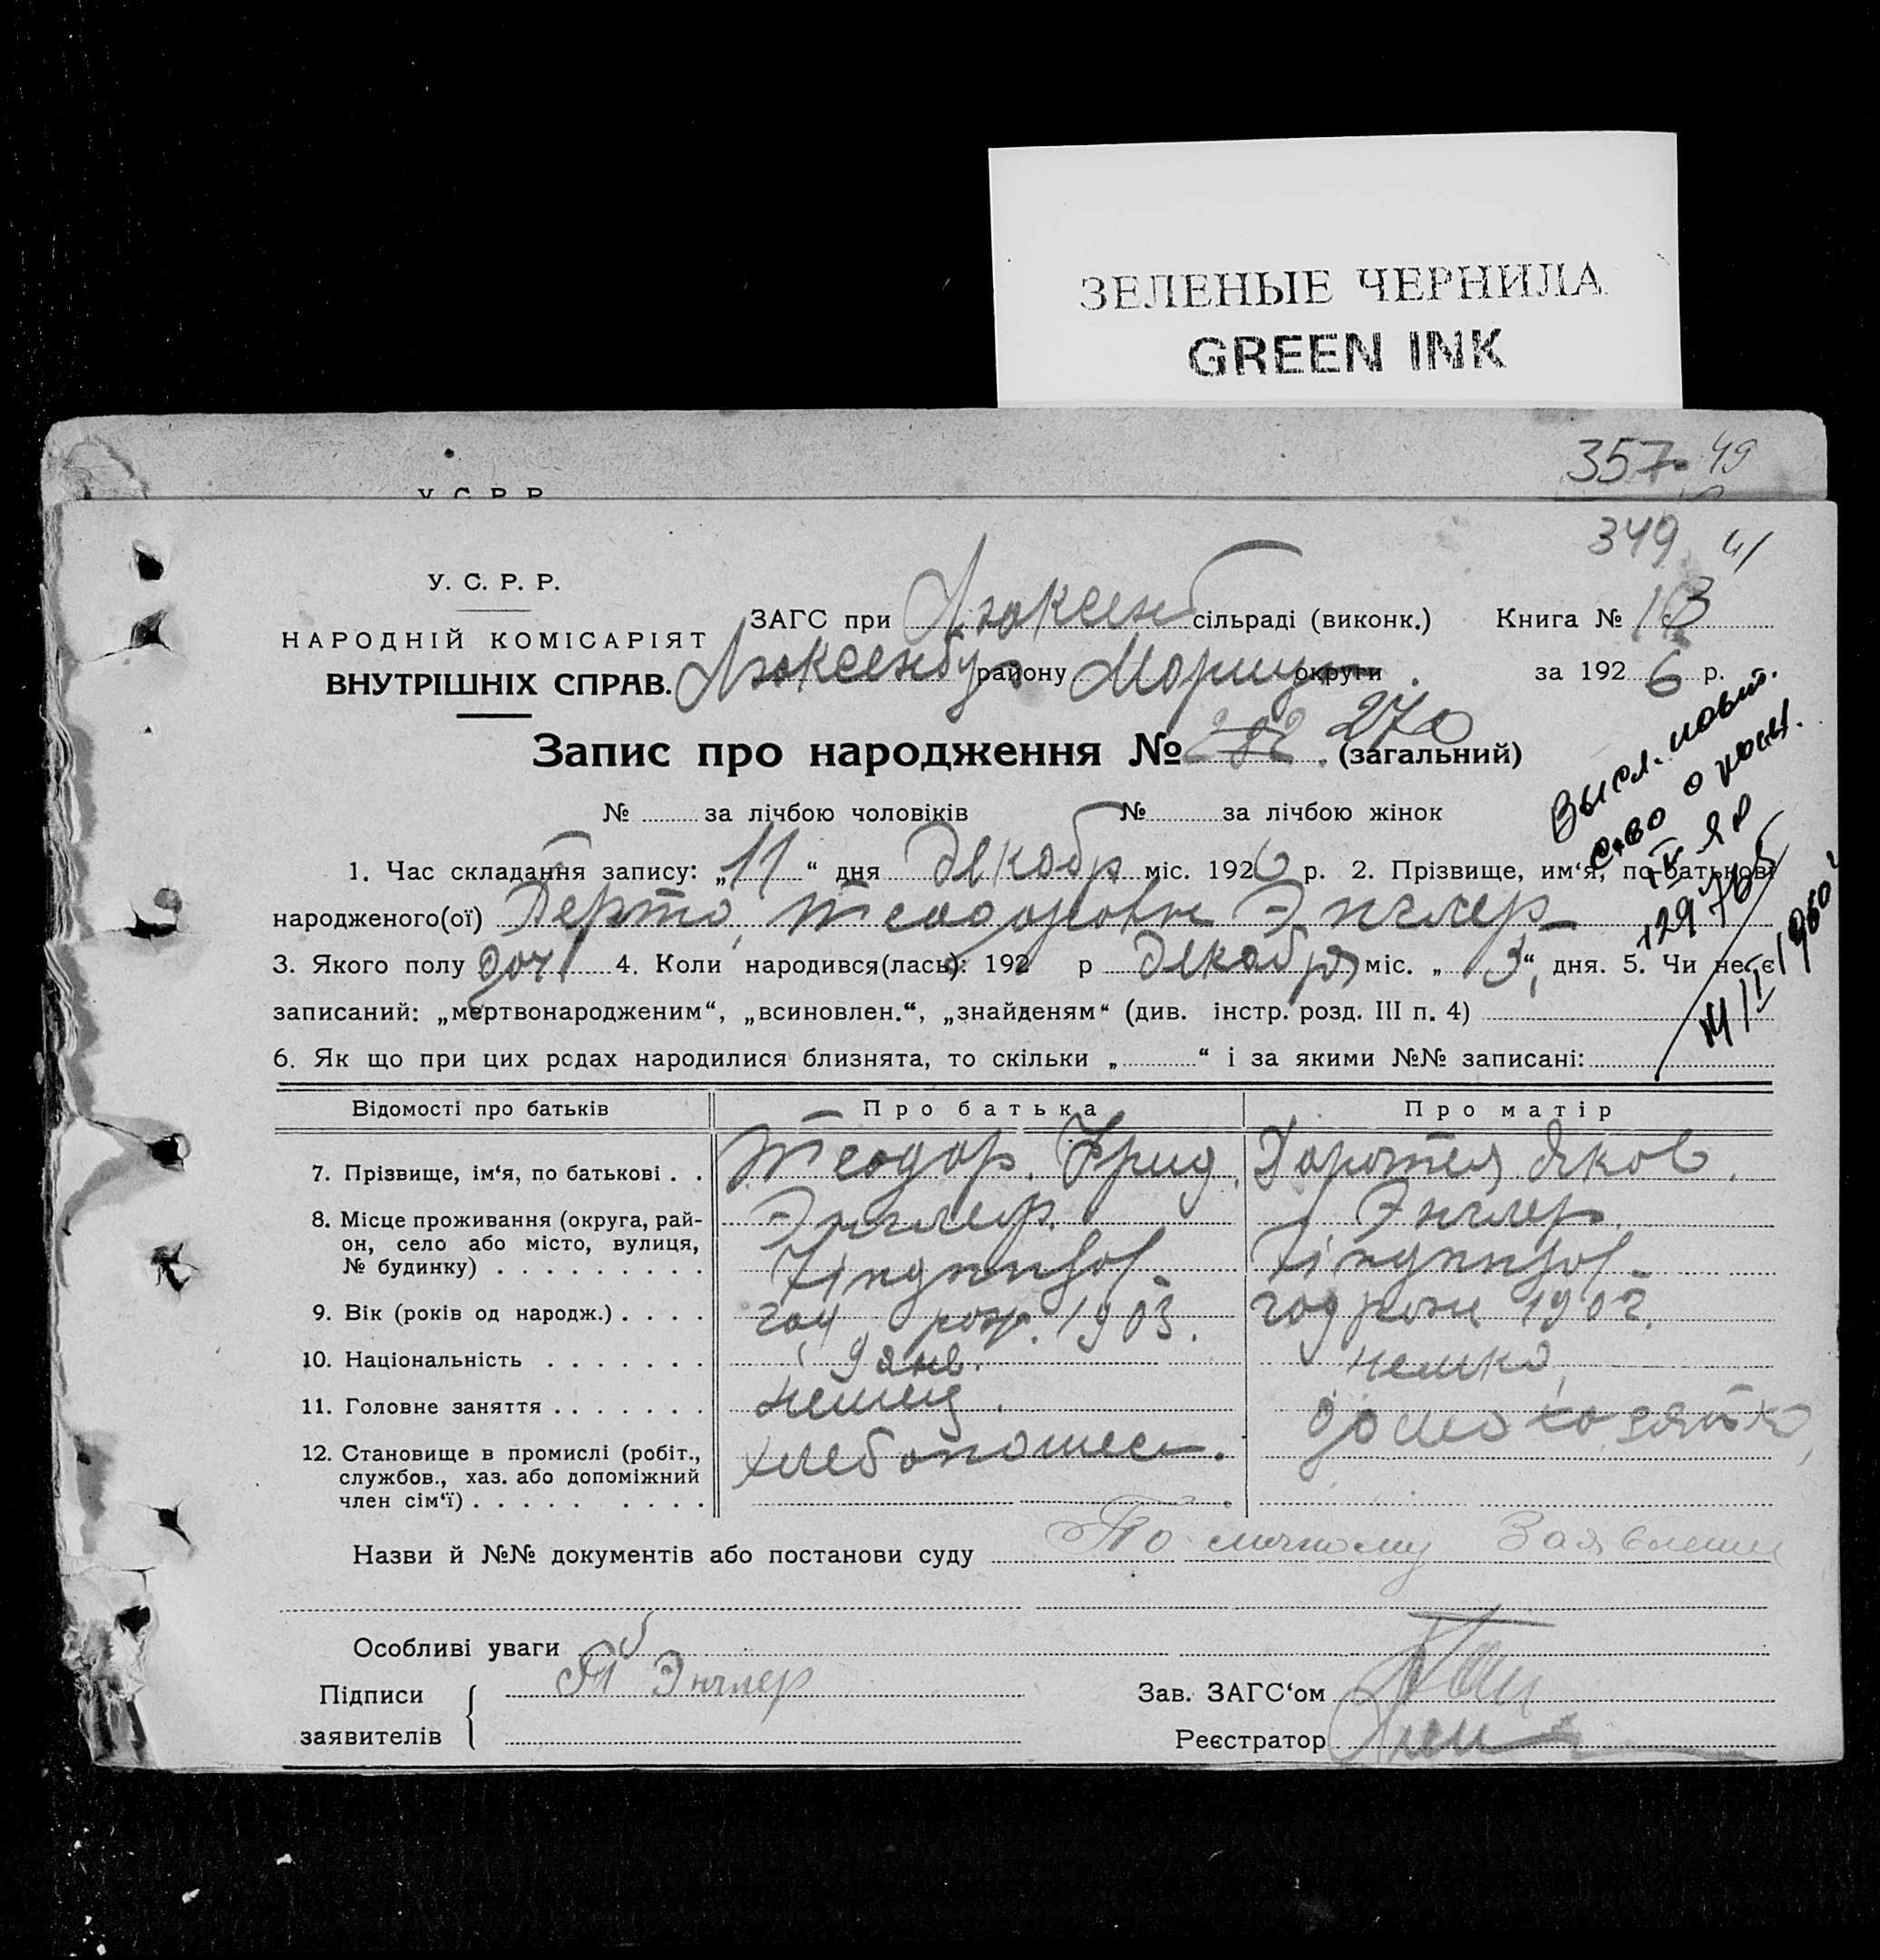 ЗЕЛЕНЫЕ ЧЕРНИЛА
GREEN INK
357 49
У. С. Р. Р.
349 41
У. С. Р. Р.
НАРОДНІЙ КОМІСАРІЯТ
ВНУТРІШНІХ СПРАВ.
ЗАГС при Люксенб сільраді (виконк.) Книга № 13
Люксенбур району Мориуп округи за 1926 р.
Запис про народження № 282 270 (загальний)
№ за лічбою чоловіків № за лічбою жінок
Высл. повт.
с-во о рожд.
1. Час складання запису: „11“ дня Декабр міс. 1926 р. 2. Прізвище, им‘я, по-батькові
народженого(ої) Берта, Теодоровна Энглер
3. Якого полу доч 4. Коли народився(лась): 192 р Декабря міс. „3“, дня. 5. Чи не є
1960 г
записаний: „мертвонародженим“, „всиновлен.“, „знайденям“ (див. інстр. розд. III п. 4)
6. Як що при цих родах народилися близнята, то скільки „ “ і за якими №№ записані:
Відомості про батьків Про батька Про матір
7. Прізвище, ім‘я, по батькові . . Теодор. Фрид. Доротея Яков.
Энглер. Энглер.
8. Місце проживання (округа, рай-
он, село або місто, вулиця,
№ будинку) . . . . . . . . .
9. Вік (років од народж.) . . . . год рож. 1903. год рожд 1902.
10. Національність . . . . . . . 9 янв. немка,
11. Головне заняття . . . . . . . немец. домохозяйка,
12. Становище в промислі (робіт., хлебопашец.
службов., хаз. або допоміжний
член сім‘ї) . . . . . . . . .
Назви й №№ документів або постанови суду По личному Заявлению
Особливі уваги
Підписи Т Энглер Зав. ЗАГС‘ом
заявителів Реєстратор